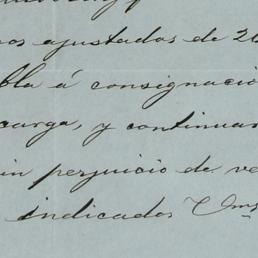 os ajustados de 20
bla á consignacio
carga, y continuar
in perjuicio de ve
indicados